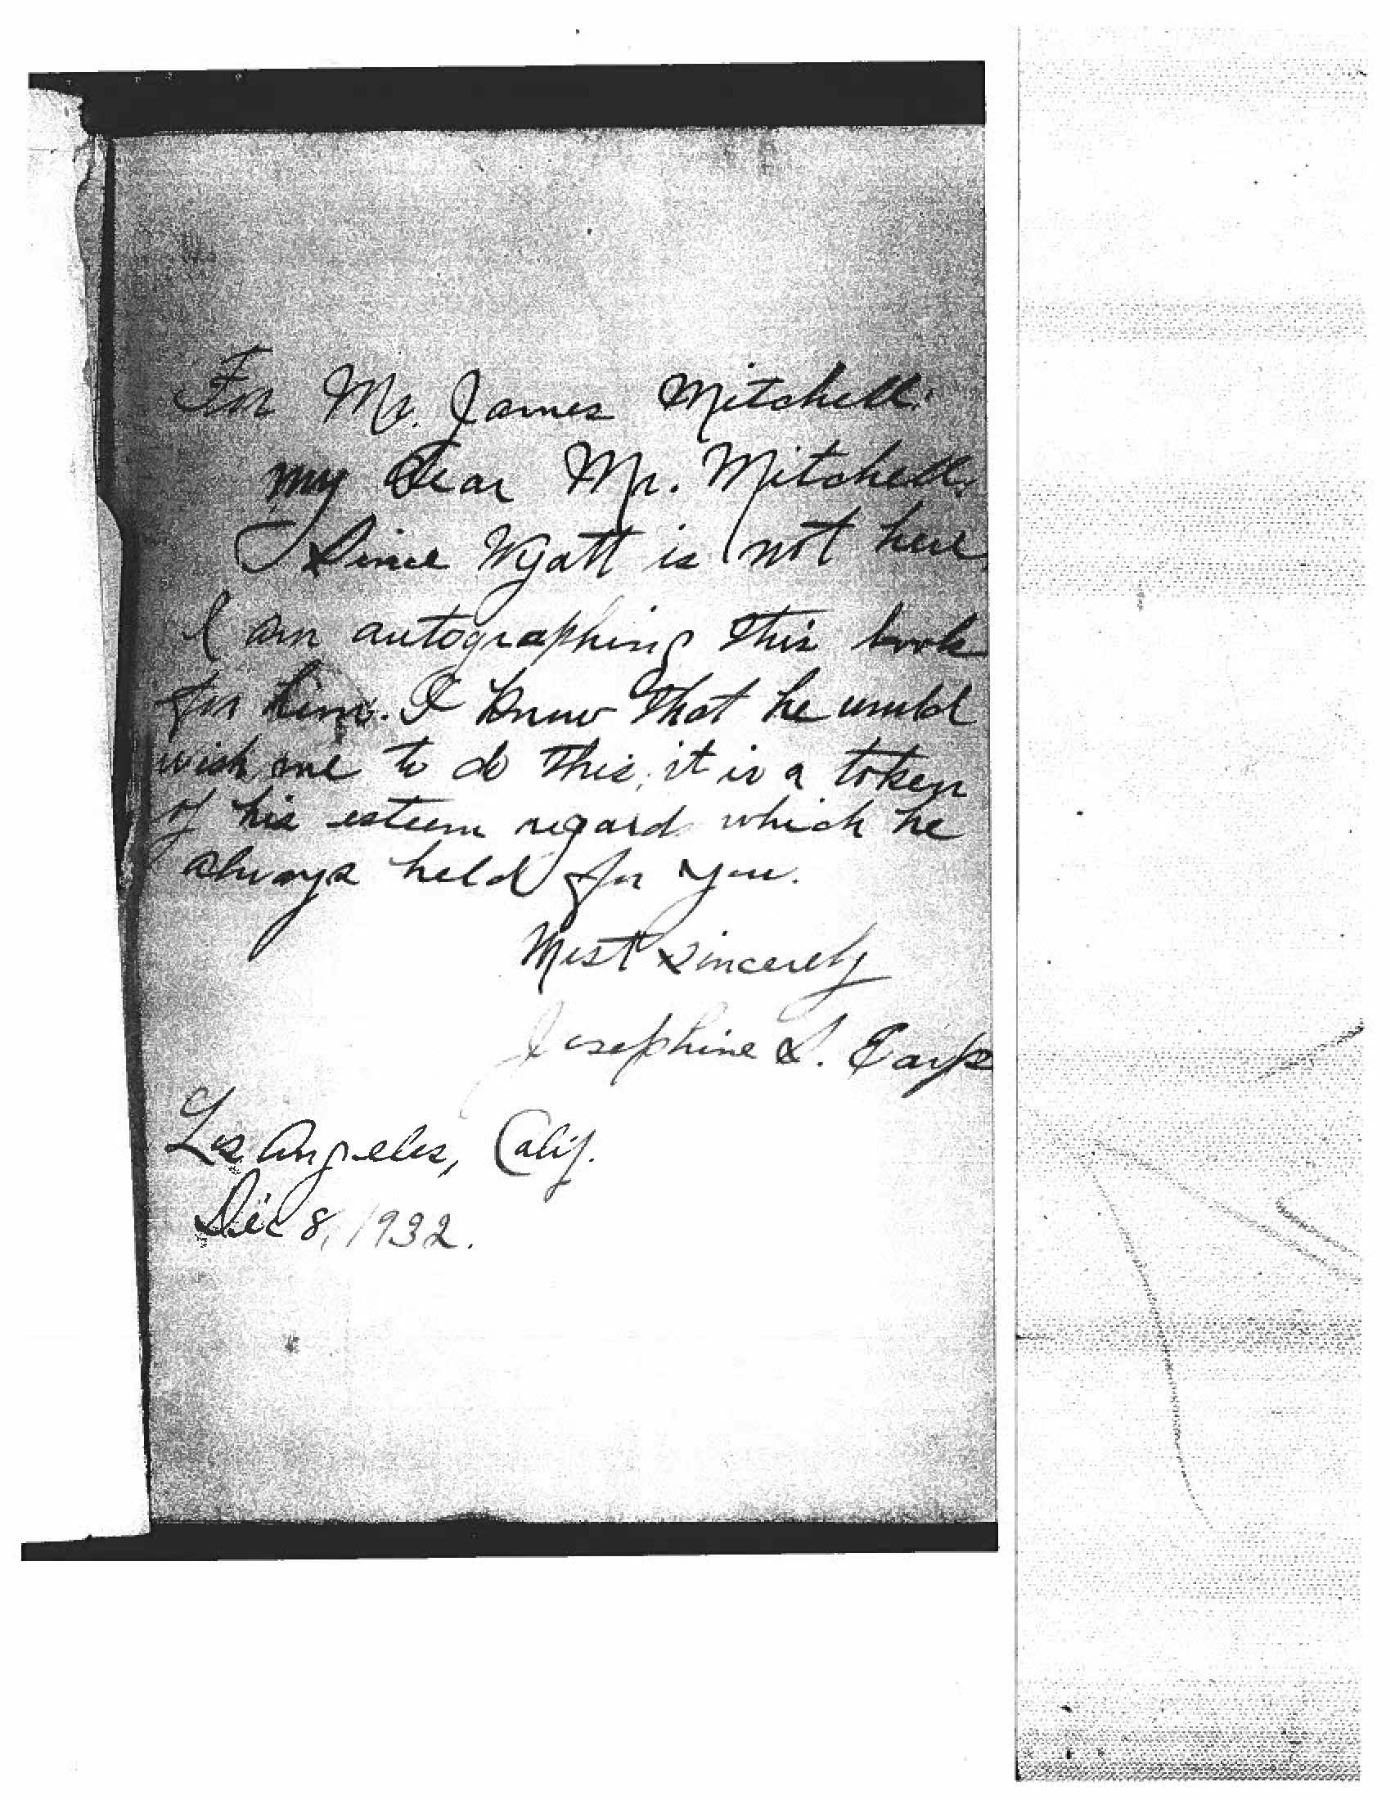 For Mr. James Mitchell:
My Dear Mr. Mitchell,
Since Wyatt is not here,
I am autographing this book
for him. I know that he would
wish me to do this, it is a token
of his esteem regard which he
always held for you.
Most Sincerely
Josephine S. Earp
Los Angeles, Calif.
Dec 8, 1932.